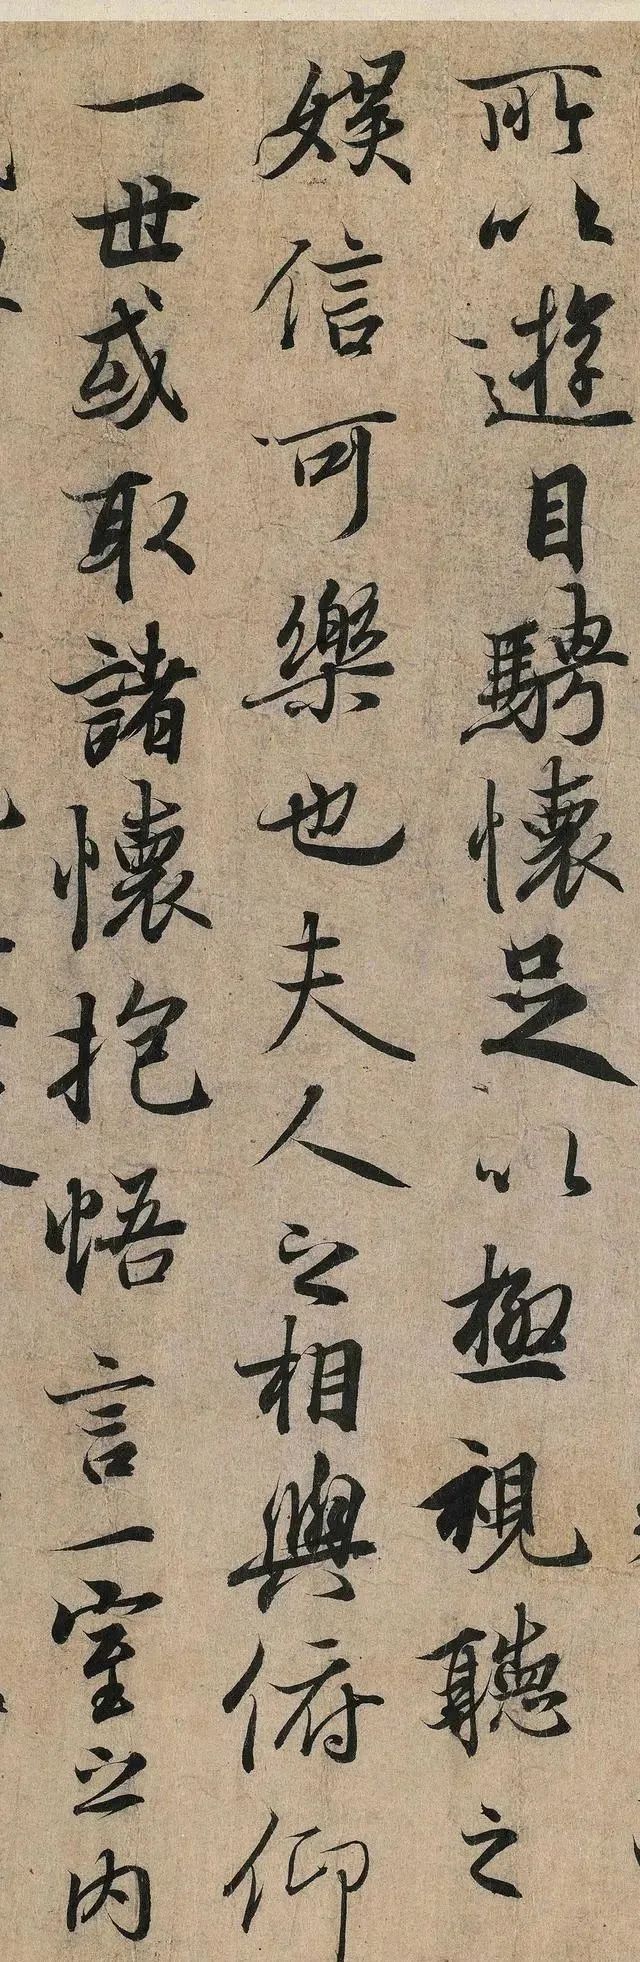 所以遊目騁懷足以極視聽之
娱信可樂也夫人之相與俯仰
一世或取諸懷抱悟言一室之内